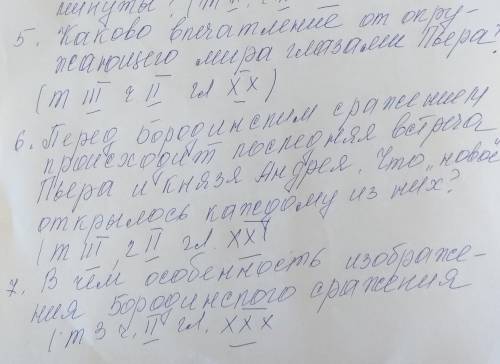 минуты? (т
5. Каково впечатление от окру-
жающего мира глазами Пьера?
(т III ч II гл XX)
6. Перед Бородинским сражением
происходит последняя встреча
Пьера и князя Андрея. Что „новое"
открылось каждому из них?
(т III, ч II гл. XXV
7. В чём особенность изображе-
ния Бородинского сражения
(т 3 ч. II гл. XXX